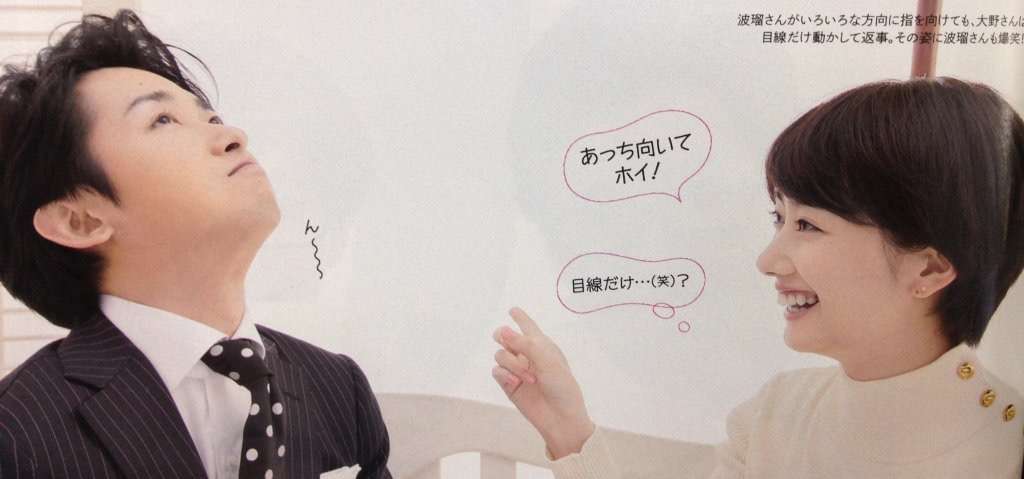 波瑠さんがいろいろな方向に指を向けても、大野さんは
目線だけ動かして返事。その姿に波瑠さんも爆笑!
あっち向いて
ホイ!
ん〜〜〜
目線だけ…(笑)?